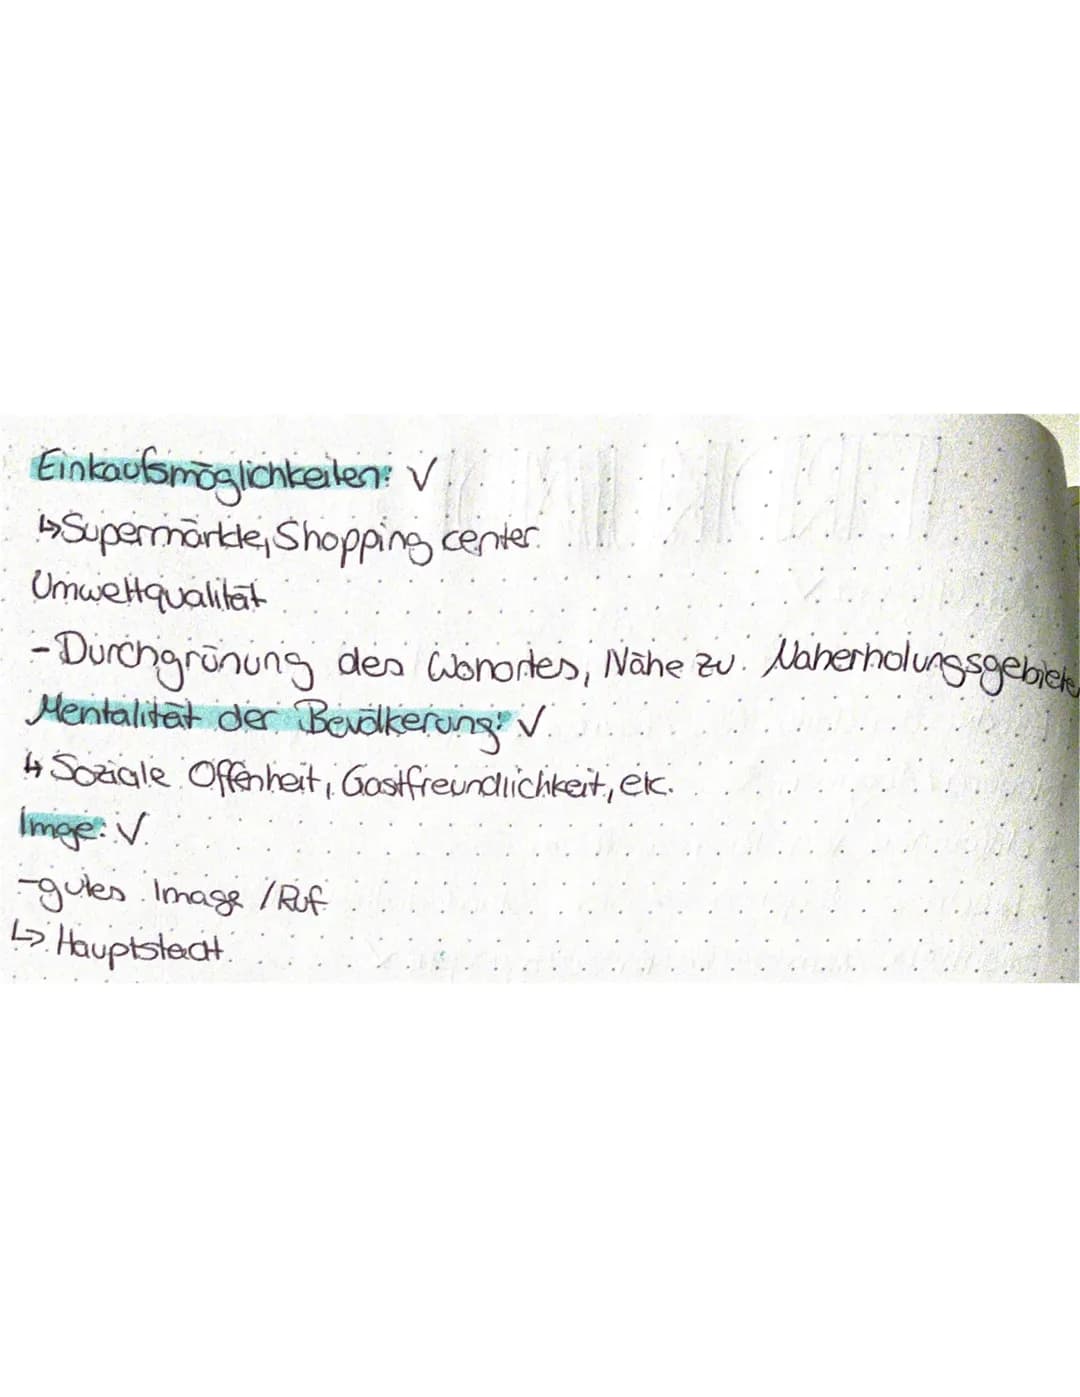 Einkaufsmöglichkeiten: √
↳Supermärkte, Shopping center.
Umweltqualität
-Durchgrünung des Wonortes, Nähe zu Naherholungsgebiete
Mentalität der Bevölkerung: √
↳ Soziale Offenheit, Gastfreundlichkeit, etc.
Imge: √
-gutes Image / Ruf
↳ Hauptstadt.